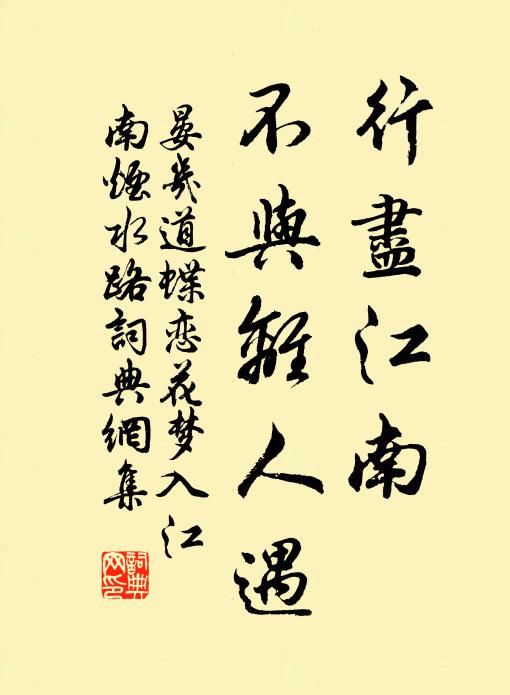 行盡江南
不與離人遇
晏幾道蝶恋花梦入江
南煙水路詞典網集
詞典
网印